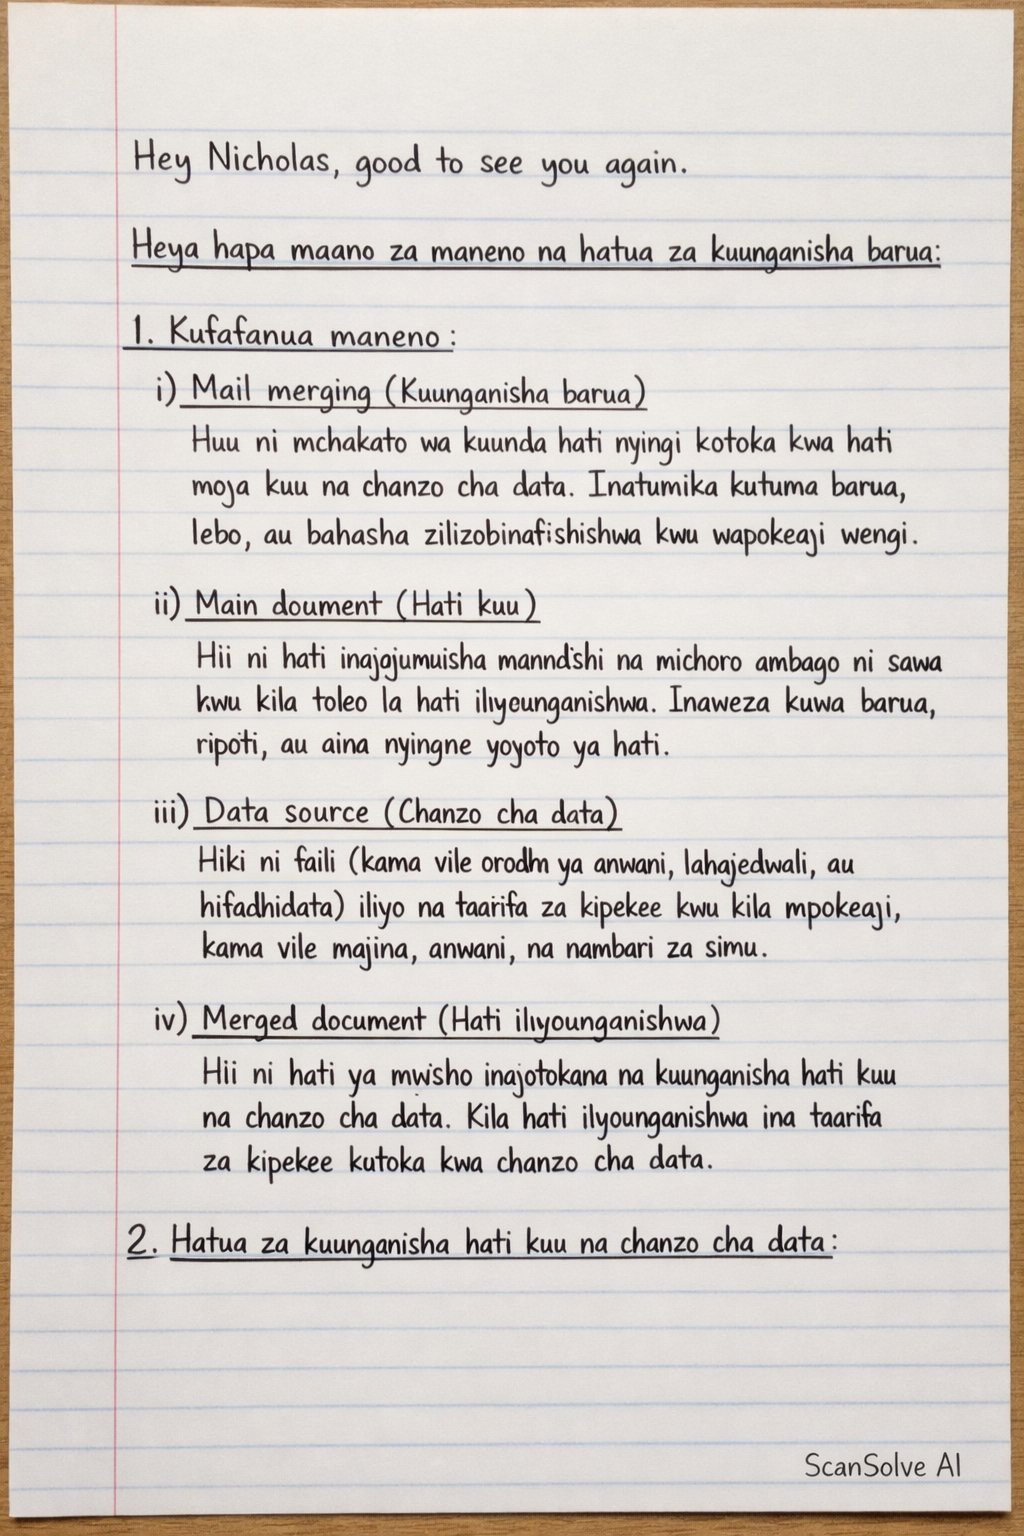 Hey Nicholas, good to see you again.
Heya hapa maano za maneno na hatua za kuunganisha barua:
1. Kufafanua maneno:
i) Mail merging (Kuunganisha barua)
Huu ni mchakato wa kuunda hati nyingi kotoka kwa hati
moja kuu na chanzo cha data. Inatumika kutuma barua,
lebo, au bahasha zilizobinafishishwa kwu wapokeaji wengi.
ii) Main doument (Hati kuu)
Hii ni hati inajojumuisha na michoro ambago ni sawa
kwu kila toleo la hati iliyeunganishwa. Inaweza kuwa barua,
ripoti, au aina nyingne yoyoto ya hati.
iii) Data source (Chanzo cha data)
Hiki ni faili (kama vile ya anwani, lahajedwali, au
hifadhidata) iliyo na taarifa za kipekee kwu kila mpokeaji,
kama vile majina, anwani, na nambari za simu.
iv) Merged document (Hati iliyounganishwa)
Hii ni hati ya mwisho inajotokana na kuunganisha hati kuu
na chanzo cha data. Kila hati ilyounganishwa ina taarifa
za kipekee kutoka kwa chanzo cha data.
2. Hatua za kuunganisha hati kuu na chanzo cha data:
ScanSolve AI